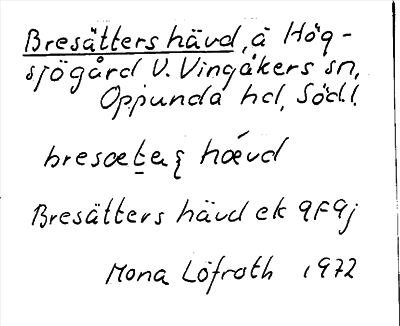 Bresätters hävd, ä Hög-
sjögård V. Vingåkers sn,
Oppunda hd, Södl.
bresætaʂ hǽvd
Bresätters hävd ek 9F9j
Mona Löfroth 1972